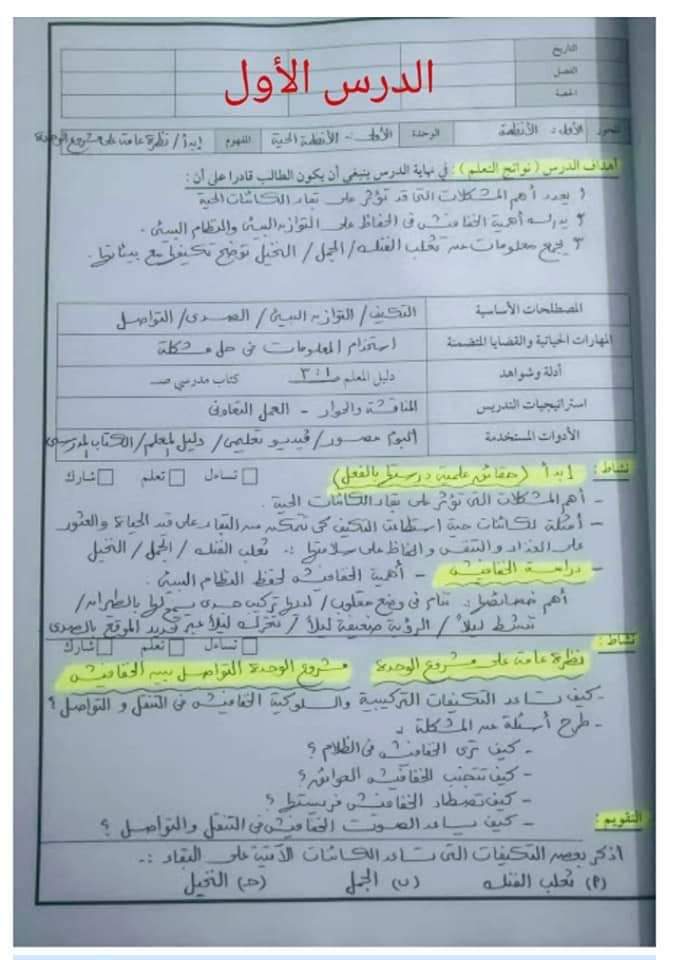 الدرس الأول
التاريخ
الفصل
الحصة
المحور الأول: الأنظمة الوحدة الأولى - الأنظمة الحية المفهوم إبدأ / نظرة عامة على مشروع الوحدة
أهداف الدرس ( نواتج التعلم ) : في نهاية الدرس ينبغي أن يكون الطالب قادرا على أن :
١ يحدد أهم المشكلات التى قد تؤثر على بقاء الكائنات الحية
٢ يدرك أهمية الخفافيش فى الحفاظ على التوازن البيئى والنظام البيئى .
٣ يجمع معلومات عن ثعلب الفنك / الجمل / النخيل توضح تكيفها مع بيئاتها .
المصطلحات الأساسية التكيف / التوازن البيئى / الصدى / التواصل
المهارات الحياتية والقضايا المتضمنة استخدام المعلومات فى حل مشكلة
أدلة وشواهد دليل المعلم ٣:١ كتاب مدرسي صـ
استراتيجيات التدريس المناقشة والحوار - العمل التعاونى
الأدوات المستخدمة البوم مصور / فيديو تعليمى / دليل المعلم / الكتاب المدرسى
نشاط : إبدأ ( حقائق علمية درستها بالفعل ) تساءل تعلم شارك
- أهم المشكلات التى تؤثر على بقاء الكائنات الحية .
- أمثلة لكائنات حية استطاعت التكيف كى تتمكن من البقاء على قيد الحياة والعثور
على الغذاء والتنفس والحفاظ على سلامتها :. ثعلب الفنك / الجمل / النخيل
- دراسة الخفافيش - أهمية الخفافيش لحفظ النظام البيئى .
أهم خصائصها :. تنام فى وضع مقلوب / لديها تركيب جسدى يسمح لها بالطيران /
تنشط ليلاً / الرؤية ضعيفة ليلاً / تتحرك ليلاً عبر تحديد الموقع بالصدى
نشاط : تساءل تعلم شارك
نظرة عامة على مشروع الوحدة مشروع الوحدة التواصل بين الخفافيش
- كيف تساعد التكيفات التركيبية والسلوكية الخفافيش فى التنقل و التواصل ؟
- طرح أسئلة عن المشكلة :
- كيف ترى الخفافيش فى الظلام ؟
- كيف تتجنب الخفافيش العوائق ؟
- كيف تصطاد الخفافيش فريستها ؟
- كيف يساعد الصوت الخفافيش فى التنقل والتواصل ؟
التقويم :
اذكر بعض التكيفات التى تساعد الكائنات الآتية على البقاء :.
(أ) ثعلب الفنك (ب) الجمل (حـ) النخيل